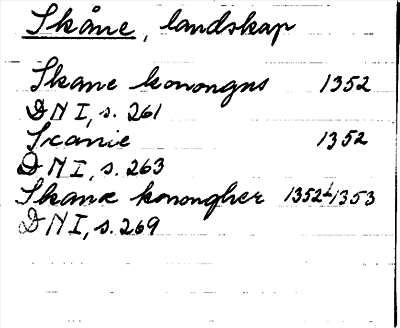 Skåne, landskap
Skane konongns 1352
DN I, s. 261
Scanie 1352
DN I, s. 263
Skanæ konongher 1352 1/1 1353
DN I, s. 269